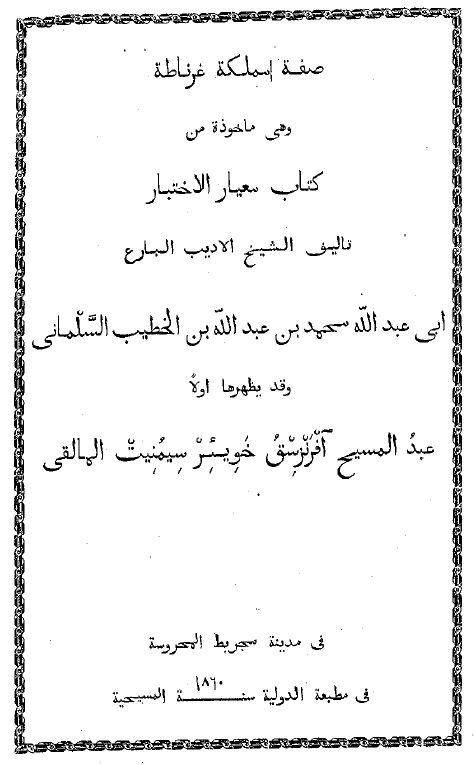 صفة اسملكة غرناطة
وهى ماخوذة من
كتاب معيار الاختبار
تاليف الشيخ الاديب البارع
ابى عبد اللّه محمد بن عبد اللّه بن الخطيب السَّلْمانى
وقد يظهرها اولاً
عبدُ المسيح آفْرَنْزِسْقُ خَوِيـئِـرْ سِيمُنِيتْ المالقى
فى مدينة مجريط المحروسة
فى مطبعة الدولية سنـــة ١٨٦٠ المسيحية